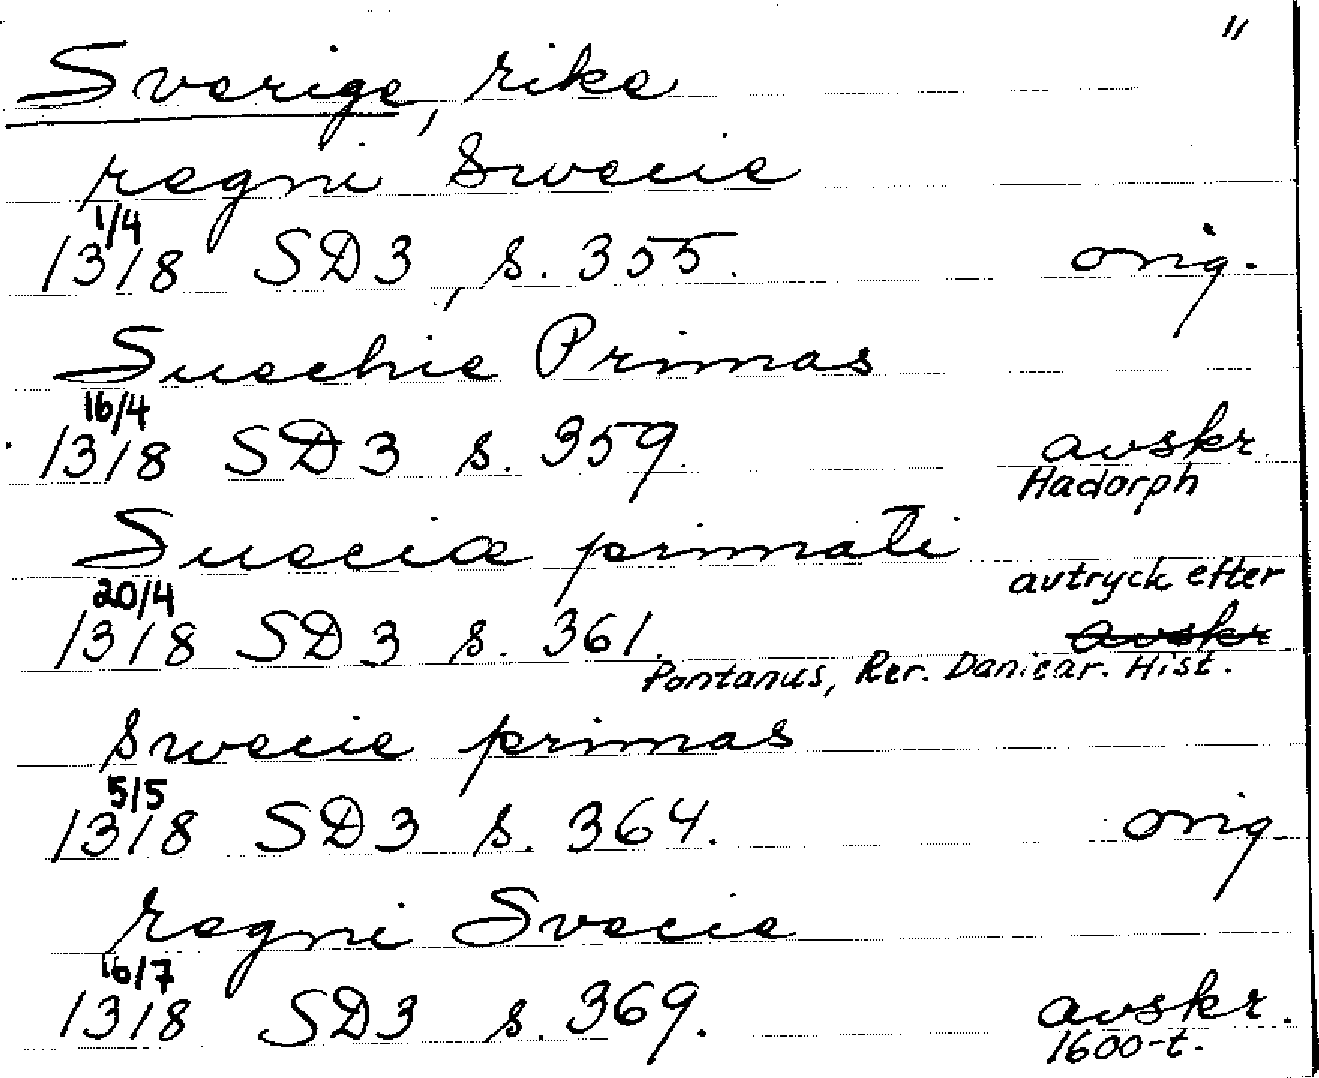 "
Sverige, rike
regni Swecie
1/4
1318 SD3, s. 355. orig.
Suechie Primas
16/4
1318 SD3 s. 359. avskr.
Hadorph
Sueciæ primati
20/4
avtryck efter
1318 SD3 s. 361. avskr
Pontanus, Rer. Danicar. Hist.
swecie primas
5/5
1318 SD3 s. 364. orig
regni Svecie
16/7
1318 SD3 s. 369. avskr.
1600-t.